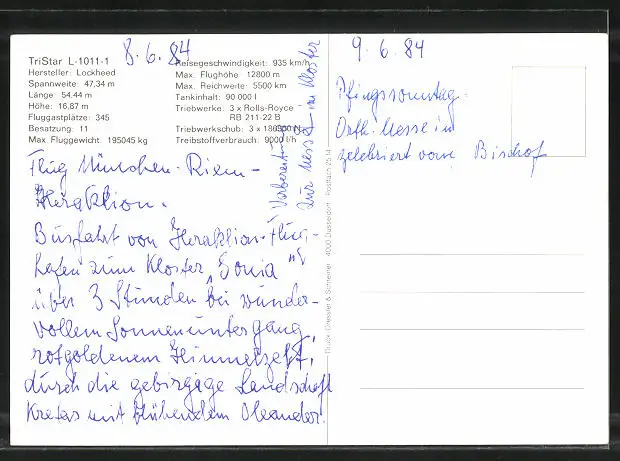 8. 6. 84
TriStar L-1011-1
Hersteller: Lockheed
Spannweite: 47,34 m
Länge: 54,44 m
Höhe: 16,87 m
Fluggastplätze: 345
Besatzung: 11
Max. Fluggewicht: 195045 kg
Reisegeschwindigkeit: 935 km/h
Max. Flughöhe 12800 m
Max. Reichweite: 5500 km
Tankinhalt: 90 000 l
Triebwerke: 3 x Rolls-Royce
RB 211-22 B
Triebwerkschub: 3 x
Treibstoffverbrauch: 9000 l/h
Flug München-Riem-
Heraklion.
Busfahrt von Heraklion-Flug-
hafen zum Kloster „Gonia"
über 3 Stunden bei wunder-
vollem Sonnenuntergang,
rotgoldenem Himmelszelt,
durch die gebirgige Landschaft
Kretas mit blühendem Oleander.
zur Messe im Kloster
9. 6. 84
Pfingssonntag-
Orth. Messe in
zelebriert vom Bischof
Druck: Dressler & 4000 Düsseldorf Postfach 25 14